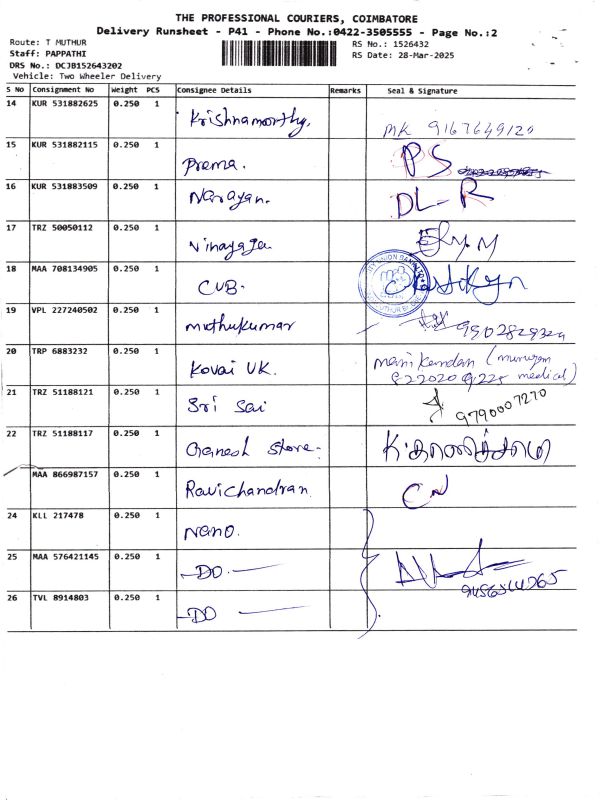 THE PROFESSIONAL COURIERS, COIMBATORE
Delivery Runsheet - P41 - Phone No.:0422-3505555 - Page No.:2
Route: T MUTHUR
RS No.: 1526432
Staff: PAPPATHI
RS Date: 28-Mar-2025
DRS No.: DCJB152643202
Vehicle: Two Wheeler Delivery
S No Consignment No Weight PCS Consignee Details Remarks Seal & Signature
14 KUR 531882625 0.250 1 Krishnamorthy. MK 9167649120
15 KUR 531882115 0.250 1 Prema. PS
16 KUR 531883509 0.250 1 Narayan. DL-R
17 TRZ 50050112 0.250 1 Vinayaga
18 MAA 708134905 0.250 1 CUB.
19 VPL 227240502 0.250 1 muthukumar
20 TRP 6883232 0.250 1 Kovai UK. manikandan (murugan medical)
21 TRZ 51188121 0.250 1 Sri Sai 9790007270
22 TRZ 51188117 0.250 1 Ganesh Store.
MAA 866987157 0.250 1 Ravichandran CN
24 KLL 217478 0.250 1 Nano.
25 MAA 576421145 0.250 1 -DO.-
26 TVL 8914803 0.250 1 -DO-